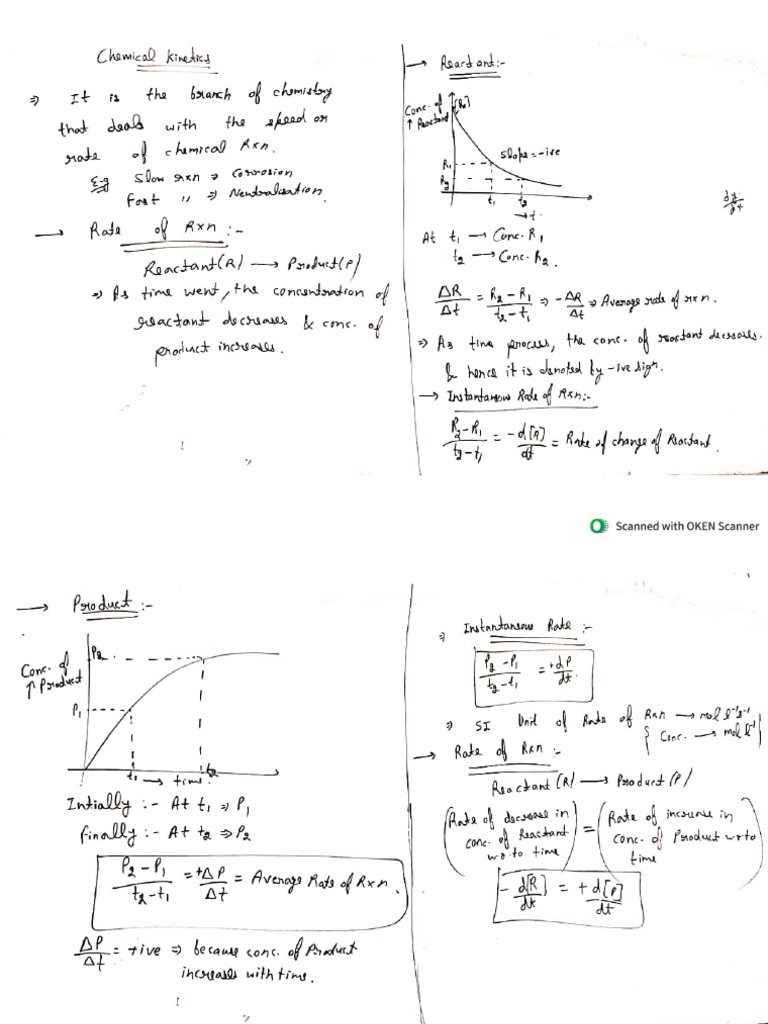 Chemical Kinetics
⇒ It is the branch of chemistry
that deals with the speed or
rate of chemical Rxn.
E.g Slow rxn ⇒ Corrosion
Fast " ⇒ Neutralisation.
→ Rate of Rxn :-
Reactant(R) → Product(P)
⇒ As time went, the concentration of
reactant decreases & conc. of
product increases.
→ Reactant:-
Conc. of
↑ Reactant
[R₀]
slope = -ive
R₁
R₂
t₁ t₂
→ t
At t₁ → Conc. R₁
t₂ → Conc. R₂.
ΔR/Δt = R₂ - R₁/t₂ - t₁ ⇒ -ΔR/Δt ⇒ Average rate of rxn.
⇒ As time process, the conc. of reactant decreases.
& hence it is denoted by -ive sign.
→ Instantaneous Rate of Rxn:-
R₂ - R₁/t₂ - t₁ = -d[R]/dt = Rate of change of Reactant.
Scanned with OKEN Scanner
→ Product :-
Conc. of
↑ Product
P₂
P₁
t₁ → time. t₂
Intially :- At t₁ ⇒ P₁
finally :- At t₂ ⇒ P₂
P₂ - P₁/t₂ - t₁ = +ΔP/Δt = Average Rate of Rxn.
ΔP/Δt = +ive ⇒ because conc. of Product
increases with time.
⇒ Instantaneous Rate :-
P₂ - P₁/t₂ - t₁ = +dP/dt.
⇒ SI Unit of Rate of Rxn → mol l⁻¹s⁻¹
{ Conc. → mol l⁻¹}
→ Rate of Rxn :-
Reactant (R) → Product (P)
(Rate of decrease in conc. of Reactant wr to time) = (Rate of increase in conc. of Product wr to time)
-d[R]/dt = +d[P]/dt